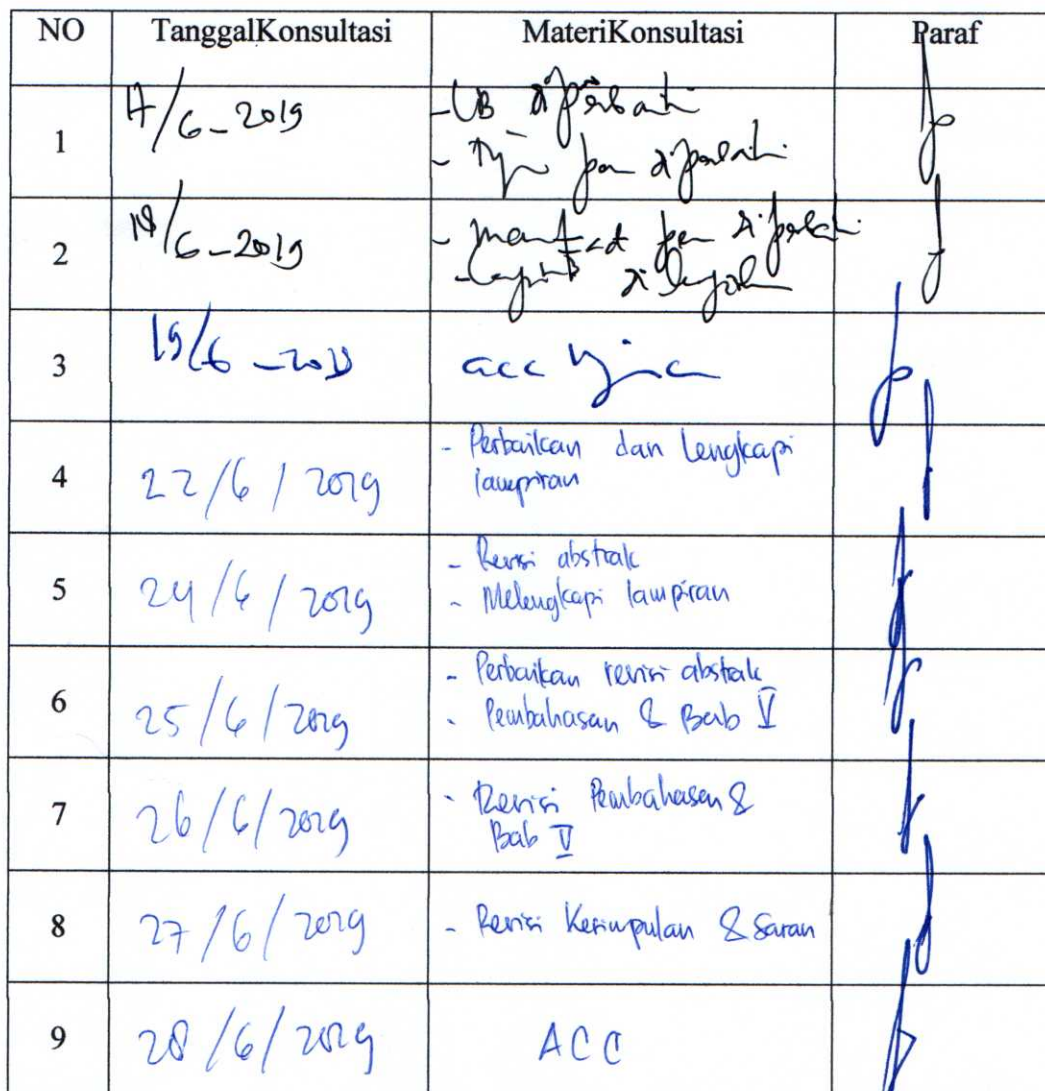 NO TanggalKonsultasi MateriKonsultasi Paraf
1 17/6-2019 - LB diperbaiki
- pen diperbaiki
2 18/6-2019 - manfaat pen diperbaiki
- dilengkapi
3 19/6-2019 acc ujian
4 22/6/2019 - Perbaikan dan lengkapi
lampiran
5 24/6/2019 - Revisi abstrak
- Melengkapi lampiran
6 25/6/2019 - Perbaikan revisi abstrak
- Pembahasan & Bab V
7 26/6/2019 - Revisi Pembahasan &
Bab V
8 27/6/2019 - Revisi Kesimpulan & Saran
9 28/6/2019 ACC